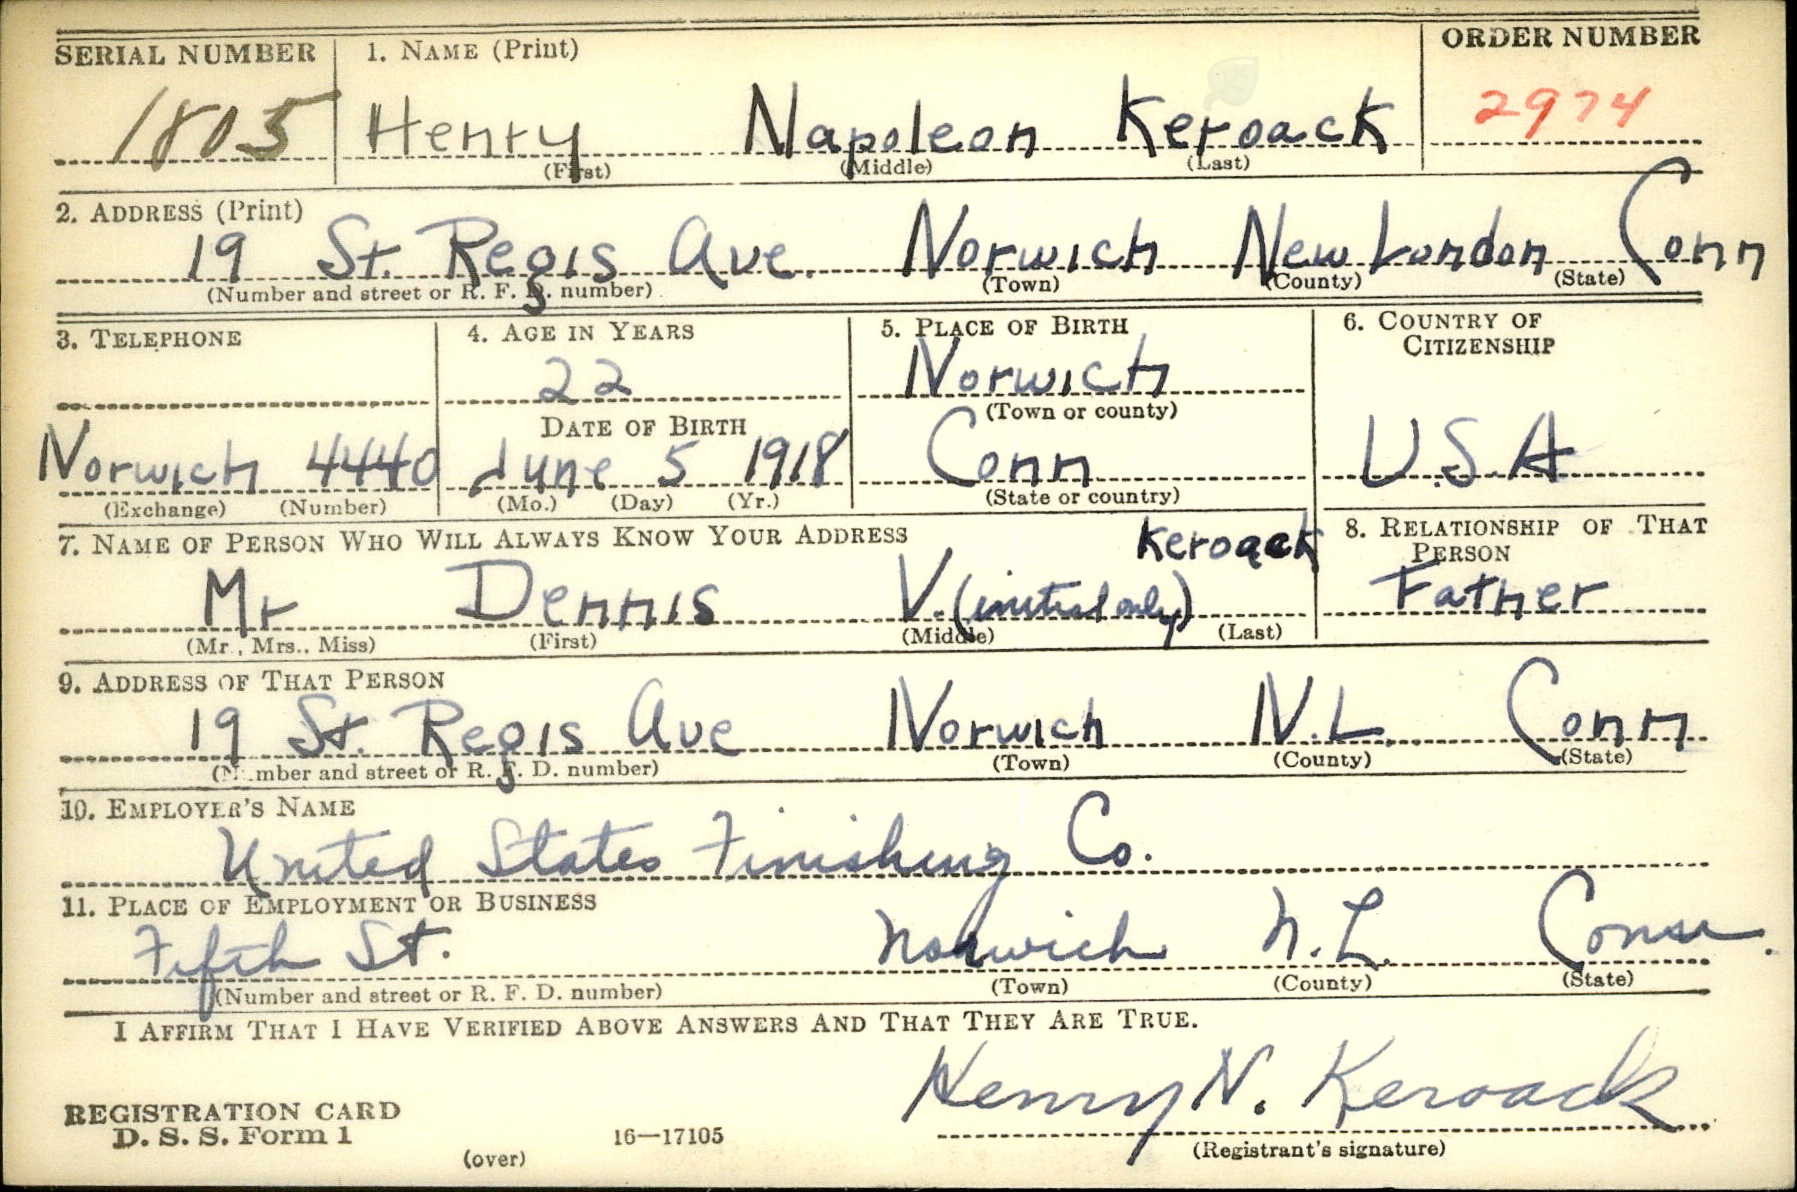 SERIAL NUMBER 1. NAME (Print) ORDER NUMBER
1805 Henry Napoleon Keroack 2974
(First) (Middle) (Last)
2. ADDRESS (Print)
19 St. Regis Ave. Norwich New London Conn
(Number and street or R. F. D. number) (Town) (County) (State)
3. TELEPHONE 4. AGE IN YEARS 5. PLACE OF BIRTH 6. COUNTRY OF
CITIZENSHIP
22 Norwich
(Town or county)
DATE OF BIRTH
Norwich 4440 June 5 1918 Conn U.S.A
(Exchange) (Number) (Mo.) (Day) (Yr.) (State or country)
7. NAME OF PERSON WHO WILL ALWAYS KNOW YOUR ADDRESS Keroack 8. RELATIONSHIP OF THAT
PERSON
Mr Dennis V. (initial only) Father
(Mr., Mrs., Miss) (First) (Middle) (Last)
9. ADDRESS OF THAT PERSON
19 St. Regis Ave Norwich N.L. Conn
(Number and street or R. F. D. number) (Town) (County) (State)
10. EMPLOYER'S NAME
United States Finishing Co.
11. PLACE OF EMPLOYMENT OR BUSINESS
Fifth St. Norwich N.L. Conn.
(Number and street or R. F. D. number) (Town) (County) (State)
I AFFIRM THAT I HAVE VERIFIED ABOVE ANSWERS AND THAT THEY ARE TRUE.
Henry N. Keroack
REGISTRATION CARD
D. S. S. Form 1 16—17105 (Registrant's signature)
(over)